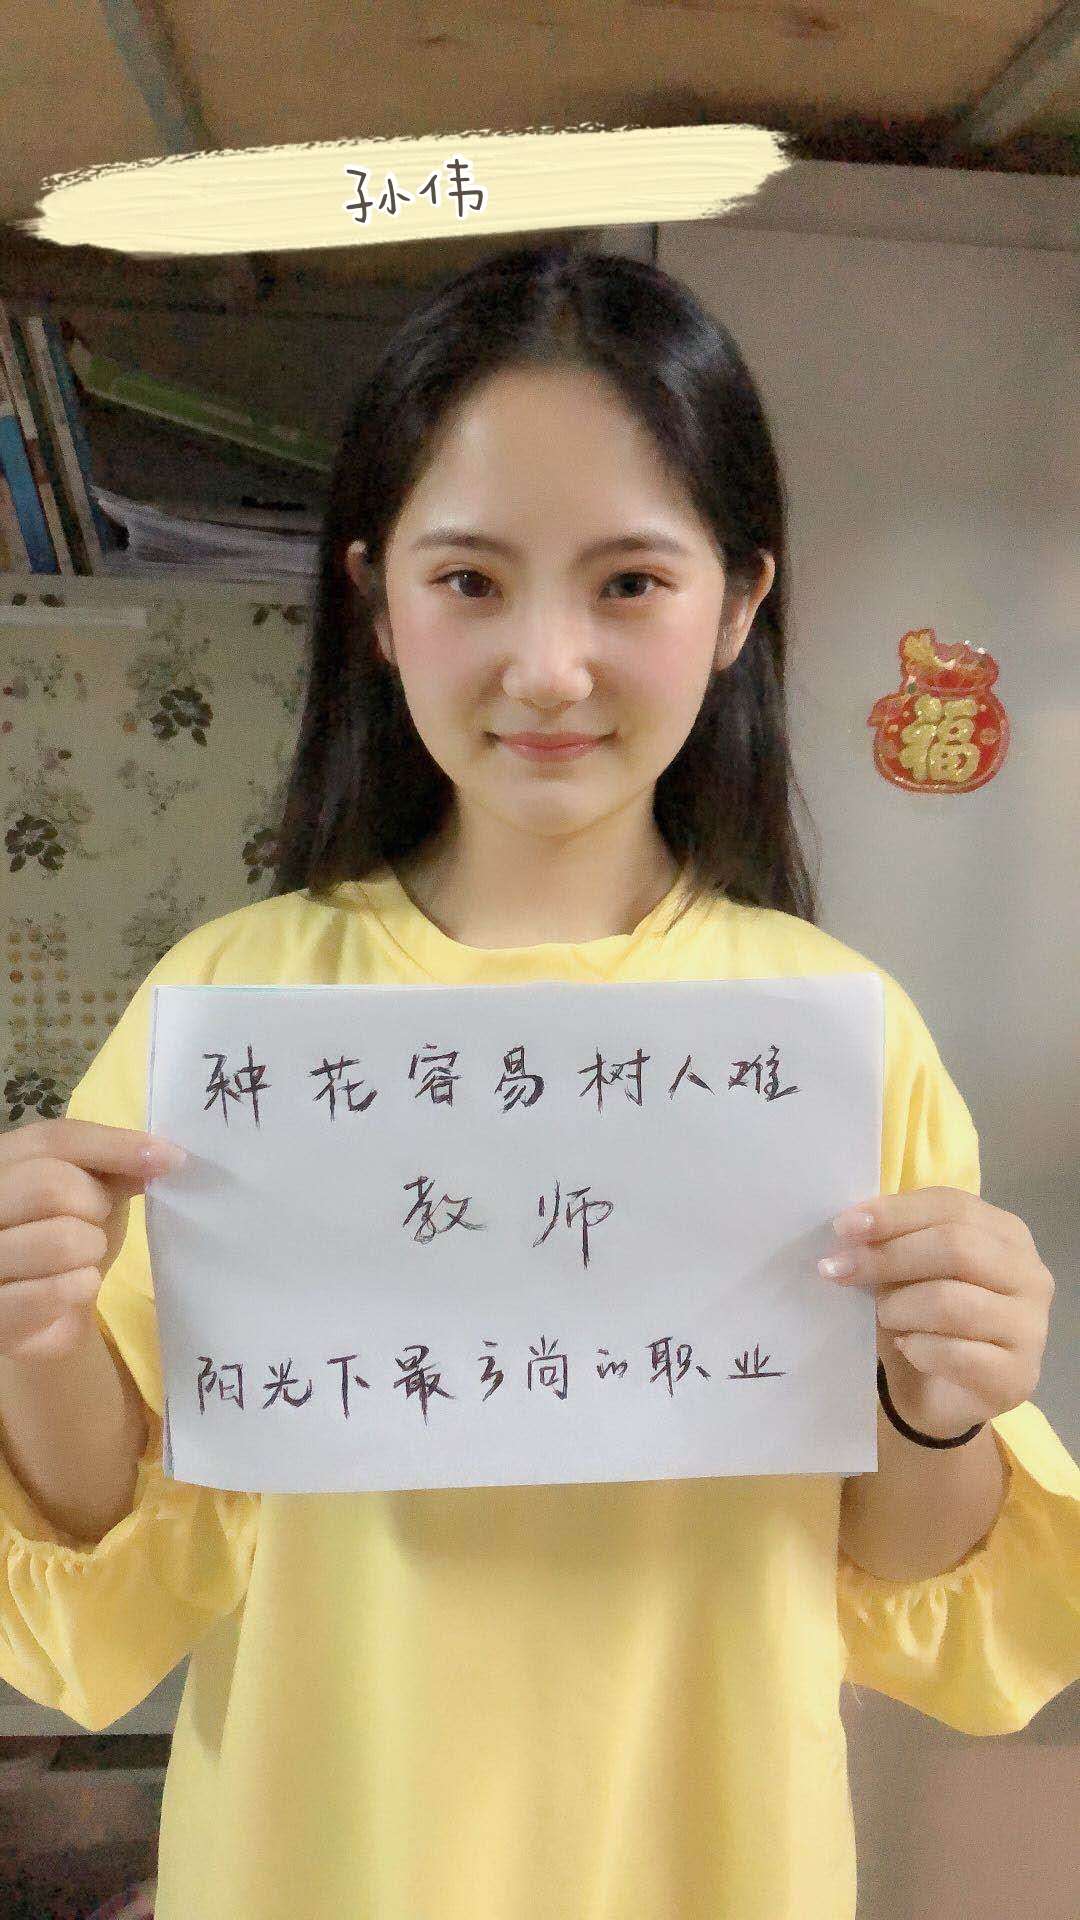 孙伟
福
种花容易树人难
教师
阳光下最高尚的职业